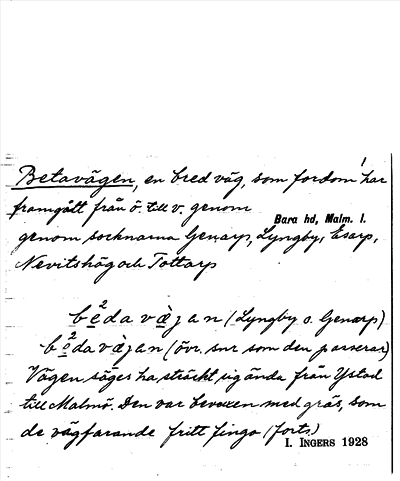 1
Betavägen, en bred väg, som fordom har
framgått från ö. till v. genom
Bara hd, Malm. l.
genom socknarna Genarp, Lyngby, Esarp,
Nevitshög och Tottarp
2
be̱da vä̱jan (Lyngby o. Genarp)
2
bo̱da vä̱jan (övr. snr som den passerar)
Vägen säges ha sträckt sig ända från Ystad
till Malmö. Den var beväxen med gräs, som
de vägfarande fritt fingo (forts.)
I. INGERS 1928